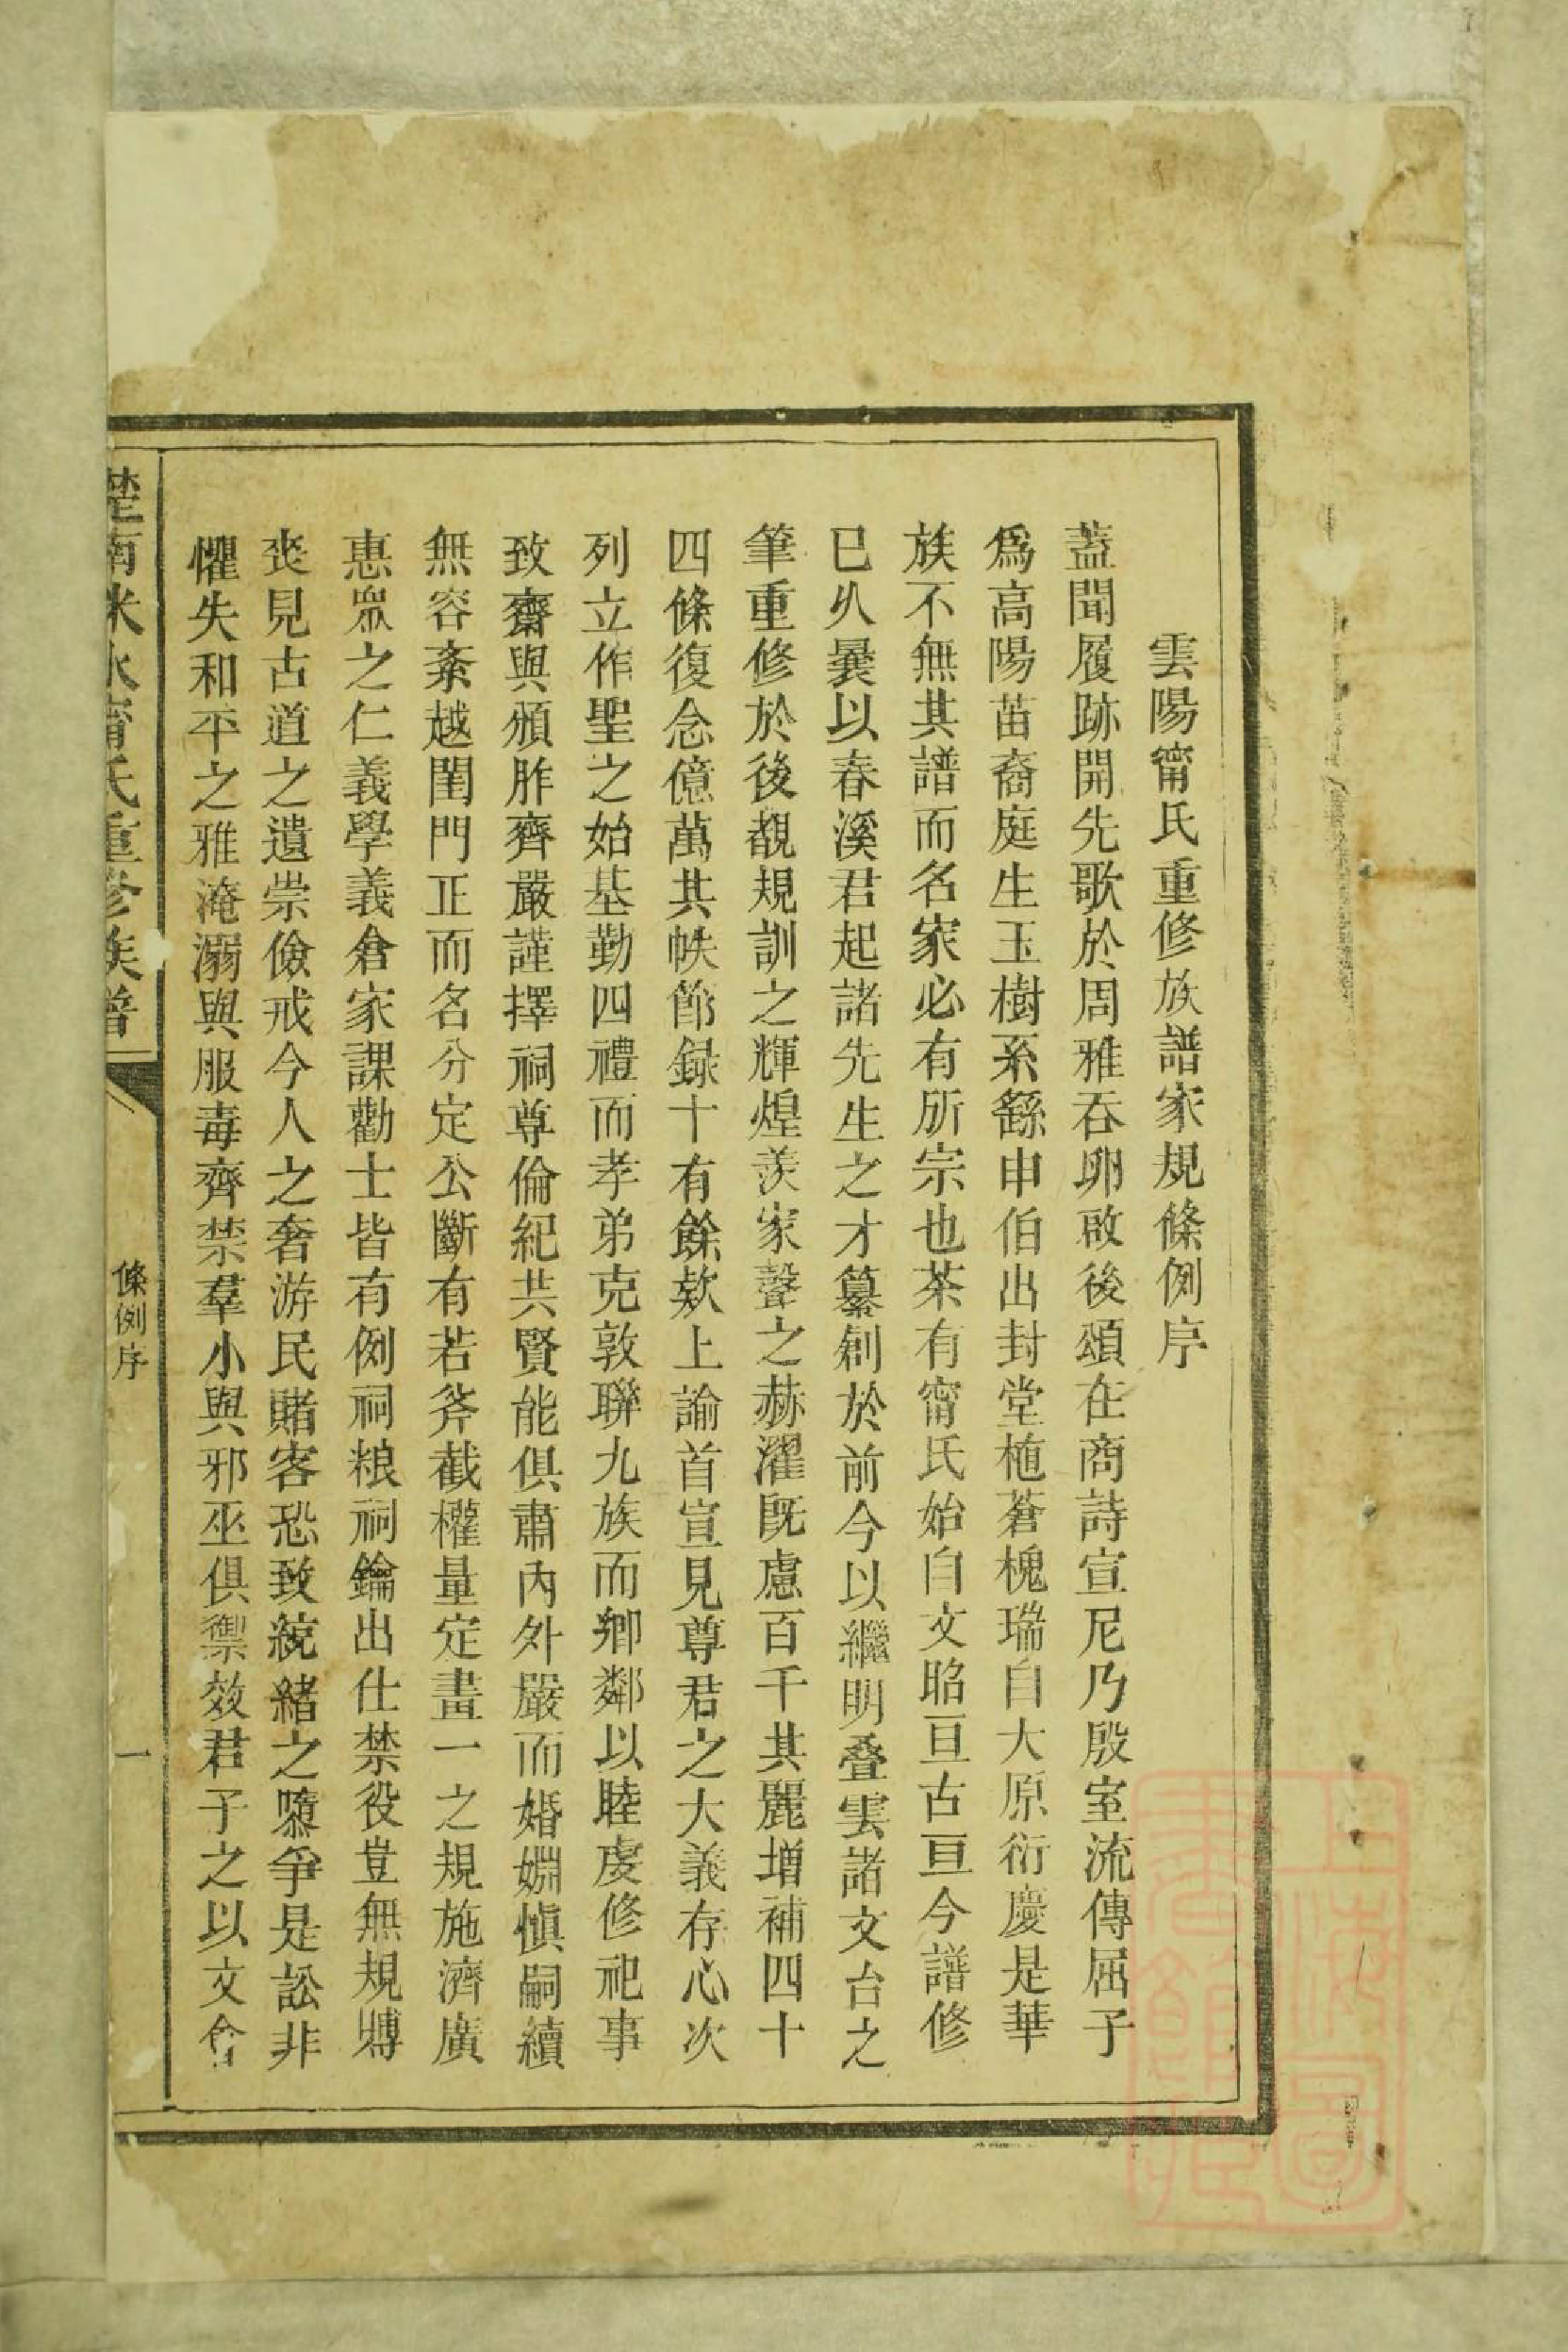 雲陽甯氏重修族譜家規條例序
蓋聞履跡開先歌於周雅吞卵啟後頌在商詩宣尼乃殷室流傳屈子
爲高陽苗裔庭生玉樹系繇申伯出封堂植蒼槐瑞自大原衍慶是華
族不無其譜而名家必有所宗也茶有甯氏始自文昭亘古亘今譜修
已久曩以春溪君起諸先生之才纂創於前今以繼明叠雲諸文台之
筆重修於後覩規訓之輝煌羨家聲之赫濯旣慮百千其麗增補四十
四條復念億萬其帙節録十有餘欵上諭首宣見尊君之大義存心次
列立作聖之始基勤四禮而孝弟克敦聯九族而鄉鄰以睦虔修祀事
致齋與頒胙齊嚴謹擇祠尊倫紀共賢能俱肅內外嚴而婚婣愼嗣續
無容紊越閨門正而名分定公斷有若斧截權量定畫一之規施濟廣
惠衆之仁義學義倉家課勸士皆有例祠粮祠錀出仕禁役豈無規賻
喪見古道之遺崇儉戒今人之奢游民賭客恐致統緒之隳爭是訟非
懼失和平之雅淹溺與服毒齊禁羣小與邪巫俱禦效君子之以文會
楚南米水甯氏重修族譜
條例序
一
上海圖
書館藏